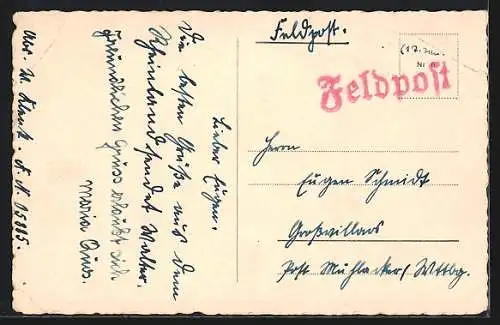 Feldpost.
Feldpost
Herrn
Eugen Schmidt
Großvillars
Post Mühlacker / Wttbg.
Lieber Eugen.
Die besten Grüße aus dem
Rheinland sendet Walter.
Freundlichen Gruss erlaubt sich
Maria
Abs. W. Klenk. F. N. 15885.